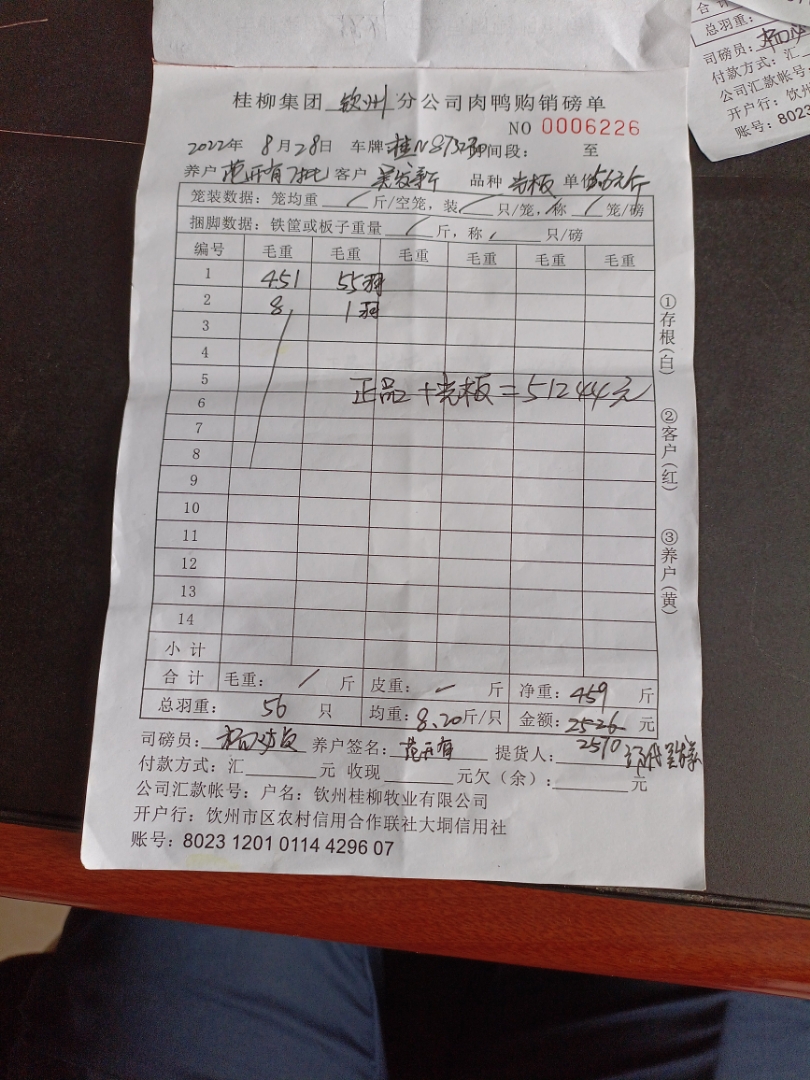 桂柳集团 钦州 分公司肉鸭购销磅单
NO 0006226
2022年 8月28日 车牌 间段： 至
养户 范开有 客户 品种 光板 单价 5.6元/斤
笼装数据：笼均重 / 斤/空笼，装 / 只/笼，称 / 笼/磅
捆脚数据：铁筐或板子重量 / 斤，称 只/磅
编号 毛重 毛重 毛重 毛重 毛重 毛重
1 451 55羽
2 8 1羽
3
4
5 正品+光板=51244元
6
7
8
9
10
11
12
13
14
小计
合计 毛重： / 斤 皮重： 斤 净重：459 斤
总羽重： 56 只 均重：8.20斤/只 金额：2526 元
2510
司磅员： 养户签名：范开有 提货人：
付款方式：汇 元 收现 元欠（余）： 元
公司汇款帐号：户名：钦州桂柳牧业有限公司
开户行：饮州市区农村信用合作联社大垌信用社
账号：8023 1201 0114 4296 07
①存根（白） ②客户（红） ③养户（黄）
总羽重：
司磅员：
付款方式：汇
公司汇款帐号：
开户行：饮州
账号：8023